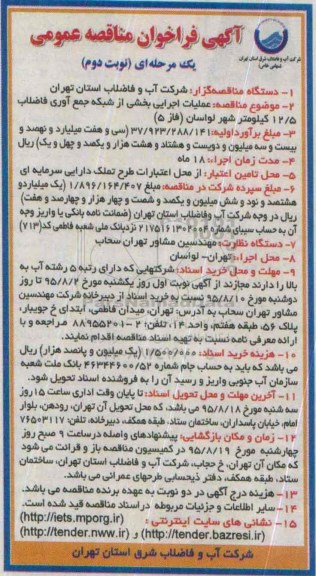 آگهی فراخوان مناقصه عمومی
یک مرحله‌ای (نوبت دوم)
شرکت آب و فاضلاب شرق استان تهران
(سهامی خاص)
۱- دستگاه مناقصه‌گزار: شرکت آب و فاضلاب استان تهران
۲- موضوع مناقصه: عملیات اجرایی بخشی از شبکه جمع آوری فاضلاب
۱۲/۵ کیلومتر شهر لواسان (فاز ۵)
۳- مبلغ برآورداولیه: ۳۷/۹۲۳/۲۸۸/۱۴۱ (سی و هفت میلیارد و نهصد و
بیست و سه میلیون و دویست و هشتاد و هشت هزار و یکصد و چهل و یک) ریال
۴- مدت زمان اجرا: ۱۸ ماه
۵- محل تامین اعتبار: از محل اعتبارات طرح تملک دارایی سرمایه ای
۶- مبلغ سپرده شرکت در مناقصه: مبلغ ۱/۸۹۶/۱۶۴/۴۰۷ (یک میلیاردو
هشتصد و نود و شش میلیون و یکصد و شصت و چهار هزار و چهارصد و هفت)
ریال در وجه شرکت آب وفاضلاب استان تهران (ضمانت نامه بانکی یا واریز وجه
آن به حساب سیبای شماره ۲۱۷۵۱۶۱۳۰۲۰۰۴ نزدبانک ملی شعبه فاطمی کد(۷۱۳)
۷- دستگاه نظارت: مهندسین مشاور تهران سحاب
۸- محل اجرا: تهران- لواسان
۹- مهلت و محل خرید اسناد: شرکتهایی که دارای رتبه ۵ رشته آب به
بالا را دارند مجازند از آگهی نوبت اول روز یکشنبه مورخ ۹۵/۸/۲ تا روز
دوشنبه مورخ ۹۵/۸/۱۰ نسبت به خرید اسناد از دبیرخانه شرکت مهندسین
مشاور تهران سحاب به آدرس: تهران، میدان فاطمی، ابتدای خ جویبار،
پلاک ۵۶، طبقه هفتم، واحد ۱۴، تلفن: ۲-۸۸۹۵۵۲۰۱ مراجعه و با
ارائه معرفی نامه نسبت به تهیه اسناد مناقصه اقدام نمایند.
۱۰- هزینه خرید اسناد: ۱/۵۰۰/۰۰۰ (یک میلیون و پانصد هزار) ریال
می باشد که باید به حساب جام شماره ۴۶۳۴۴۶۰۰/۵۲ بانک ملت شعبه
سازمان آب جنوبی واریز و رسید آن را به فروشنده اسناد تحویل شود.
۱۱- آخرین مهلت و محل تحویل اسناد: تا پایان وقت اداری ساعت ۱۵ روز
سه شنبه مورخ ۹۵/۸/۱۸ می باشد، که محل تحویل آن تهران، رودهن، بلوار
امام، خیابان پاسداران، ساختمان ستاد، طبقه همکف، دبیرخانه، تلفن: ۷۶۵۰۳۱۱۷
۱۲- زمان و مکان بازگشایی: پیشنهادهای واصله درساعت ۹ صبح روز
چهارشنبه مورخ ۹۵/۸/۱۹ در کمیسیون مناقصه باز و قرائت می شود
که مکان آن تهران، خ حجاب، شرکت آب و فاضلاب استان تهران، ساختمان
ستاد، طبقه همکف، دفتر ذیحسابی طرحهای عمرانی می باشد.
۱۳- هزینه درج آگهی در دو نوبت به عهده برنده مناقصه می باشد.
۱۴- سایر اطلاعات و جزئیات مربوطه در اسناد مناقصه قید شده است.
۱۵- نشانی های سایت اینترنتی: (http://iets.mporg.ir)
(http://tender.bazresi.ir) و (http://tender.nww.ir)
شرکت آب و فاضلاب شرق استان تهران